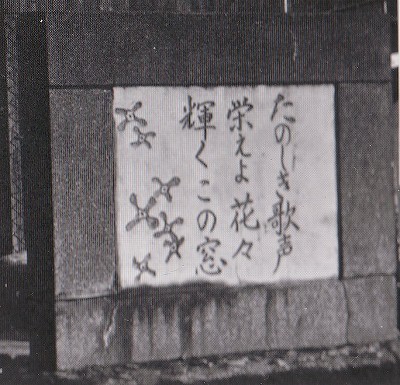 たのしき歌声
栄えよ花々
輝くこの窓